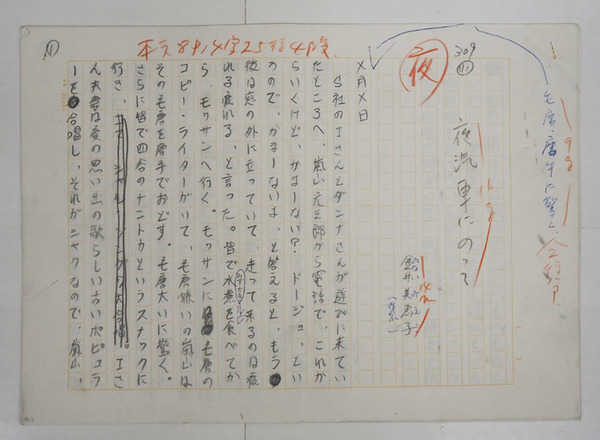 毛唐、唐手に驚く
全額
309
⑪
夜
夜汽車にのって
金井美恵子
①
本文8ポ14字25行4段
×月×日
S社のIさんとダンナさんが遊びに来てい
たところへ、嵐山光三郎から電話で、これか
らいくけど、かまーない? ドージョ、とい
うので、かまーないよ、と答えると、もう
彼は窓の外に立っていて、走って来るのは疲
れる疲れる、と言った。皆で水煮を食べてか
ら、モッサンへ行く。モッサンに毛唐の
コピー・ライターがいて、毛唐嫌いの嵐山は
その毛唐を唐手でおどす。毛唐大いに驚く。
さらに皆で四谷のナントカというスナックに
行き、Iさ
ん夫妻は愛の思い出の歌らしい古いポピュラ
ーを合唱し、それがシャクなので、嵐山、